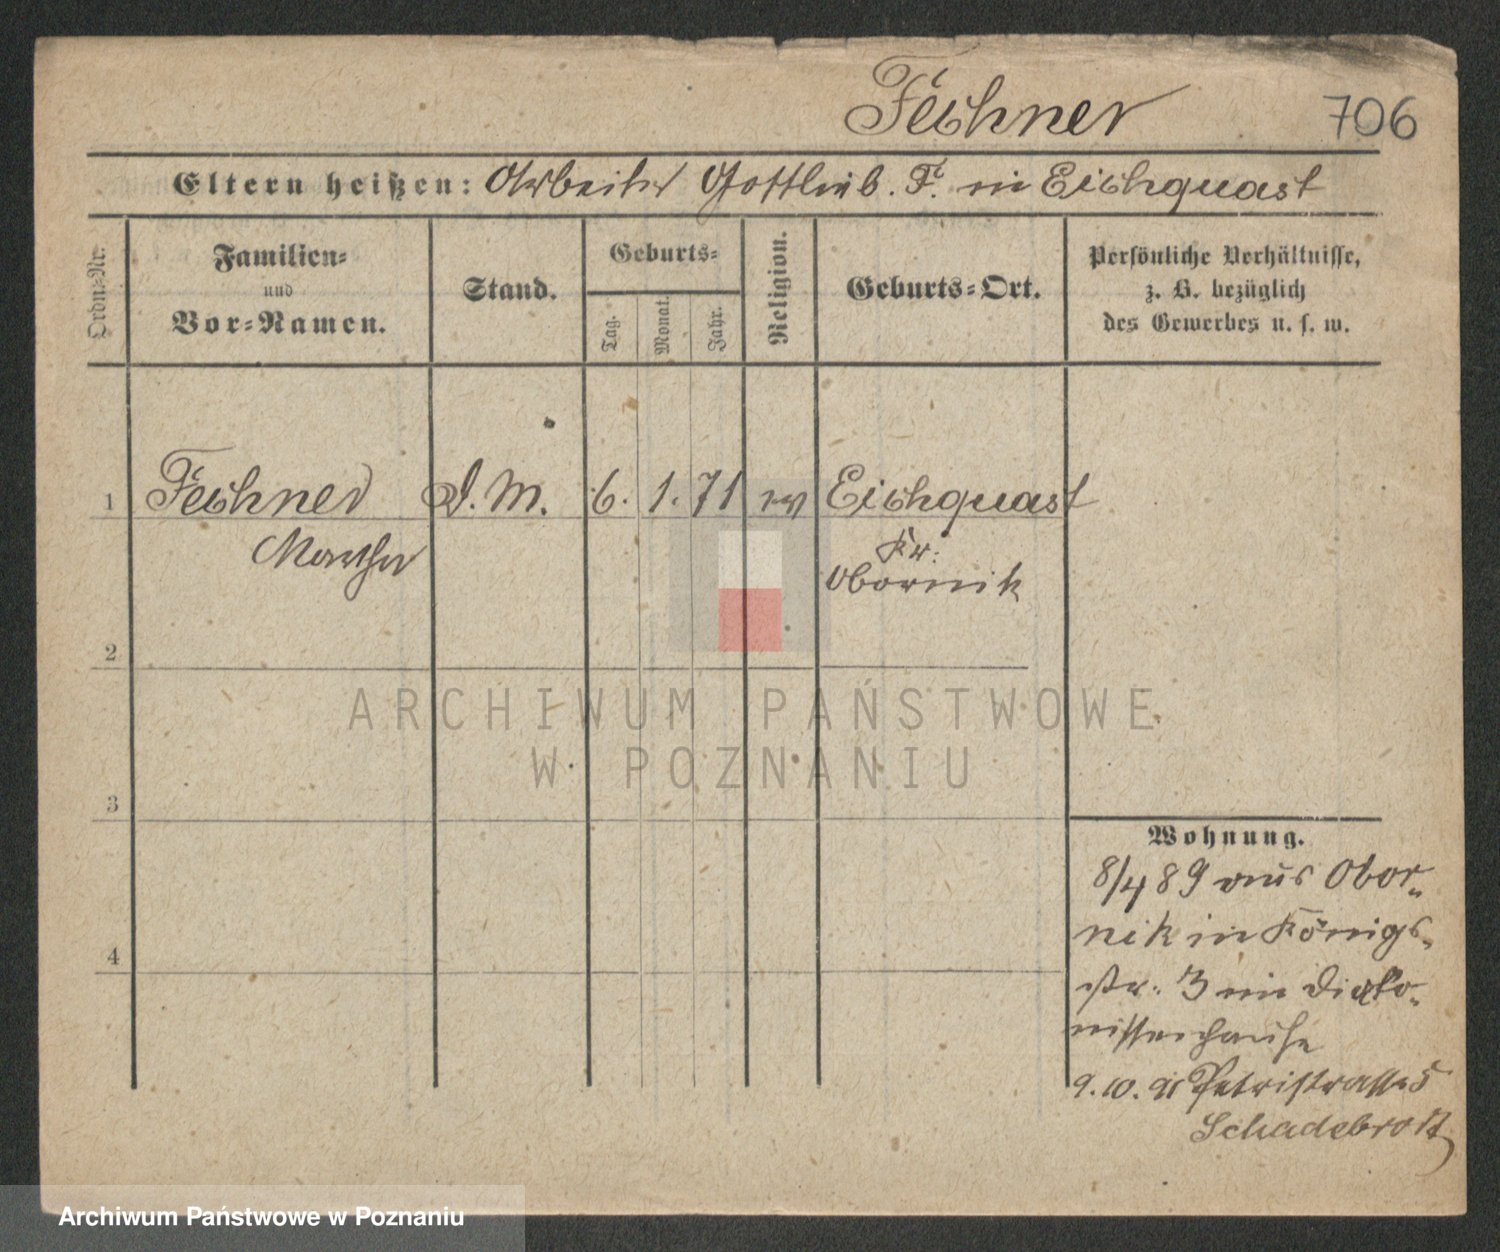 Fechner 706
Eltern heißen: Arbeiter Gottlieb. F. in Eichquast
Ordn.-Nr.
Familien-
und
Vor-Namen.
Stand.
Geburts-
Tag.
Monat.
Jahr.
Religion.
Geburts-Ort.
Persönliche Verhältnisse,
z. B. bezüglich
des Gewerbes u. s. w.
1 Fechner D. M. 6. 1. 71 ev Eichquast
Martha Kr:
Obornik
2
3
4
Wohnung.
8/4 89 aus Obor-
nik in Königs-
str. 3 im Diako-
nissenhause
9. 10. 91 Petristrasse 5
ARCHIWUM PAŃSTWOWE
W POZNANIU
Archiwum Państwowe w Poznaniu